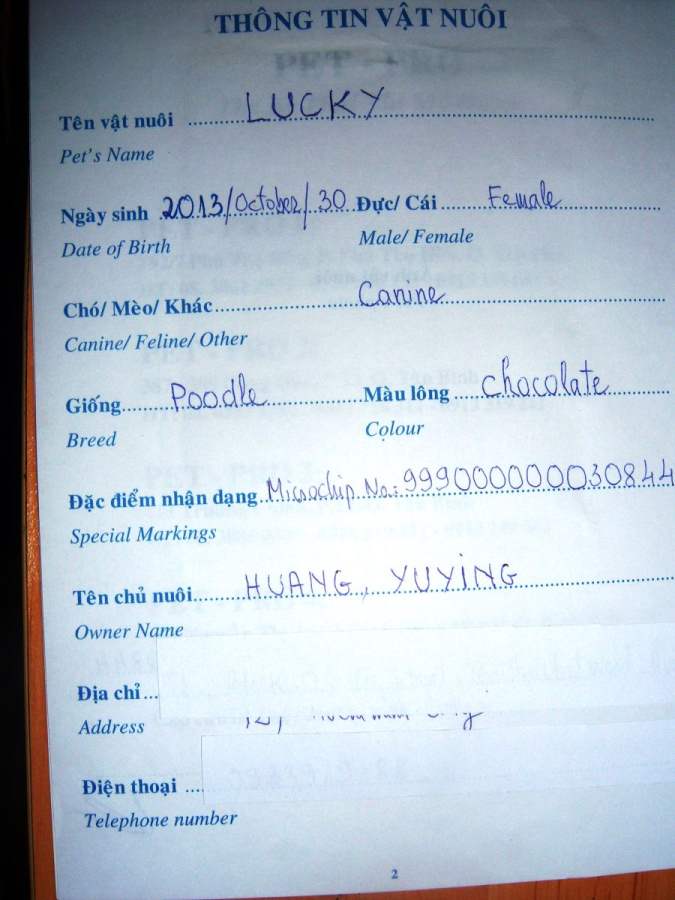 THÔNG TIN VẬT NUÔI
Tên vật nuôi LUCKY
Pet's Name
Ngày sinh 2013/October/30 Đực/ Cái Female
Date of Birth Male/ Female
Chó/ Mèo/ Khác Canine
Canine/ Feline/ Other
Giống Poodle Màu lông chocolate
Breed Colour
Đặc điểm nhận dạng Microchip No.: 999000000030844
Special Markings
Tên chủ nuôi HUANG, YUYING
Owner Name
Địa chỉ
Address
Điện thoại
Telephone number
2